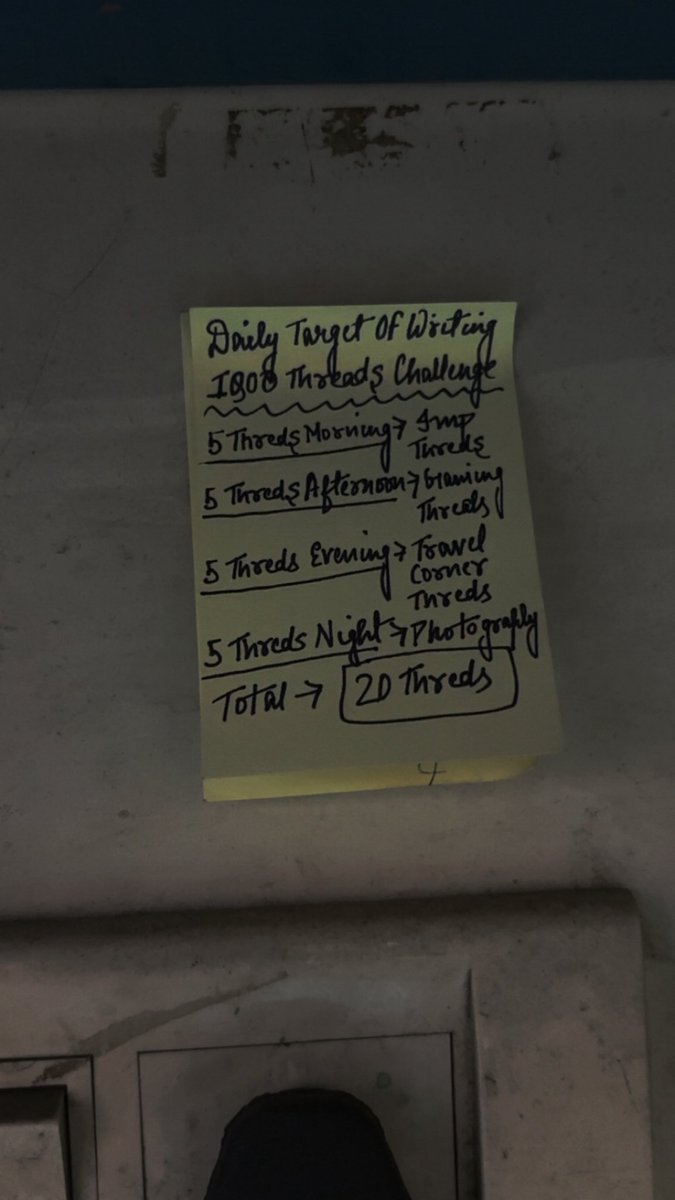 Daily Target Of Writing
IQOO Threads Challenge
5 Threds Morning → Imp
Threds
5 Threds Afternoon → Gaming
Threads
5 Threds Evening → Travel
Corner
Threds
5 Threds Night → Photography
Total → 20 Threds